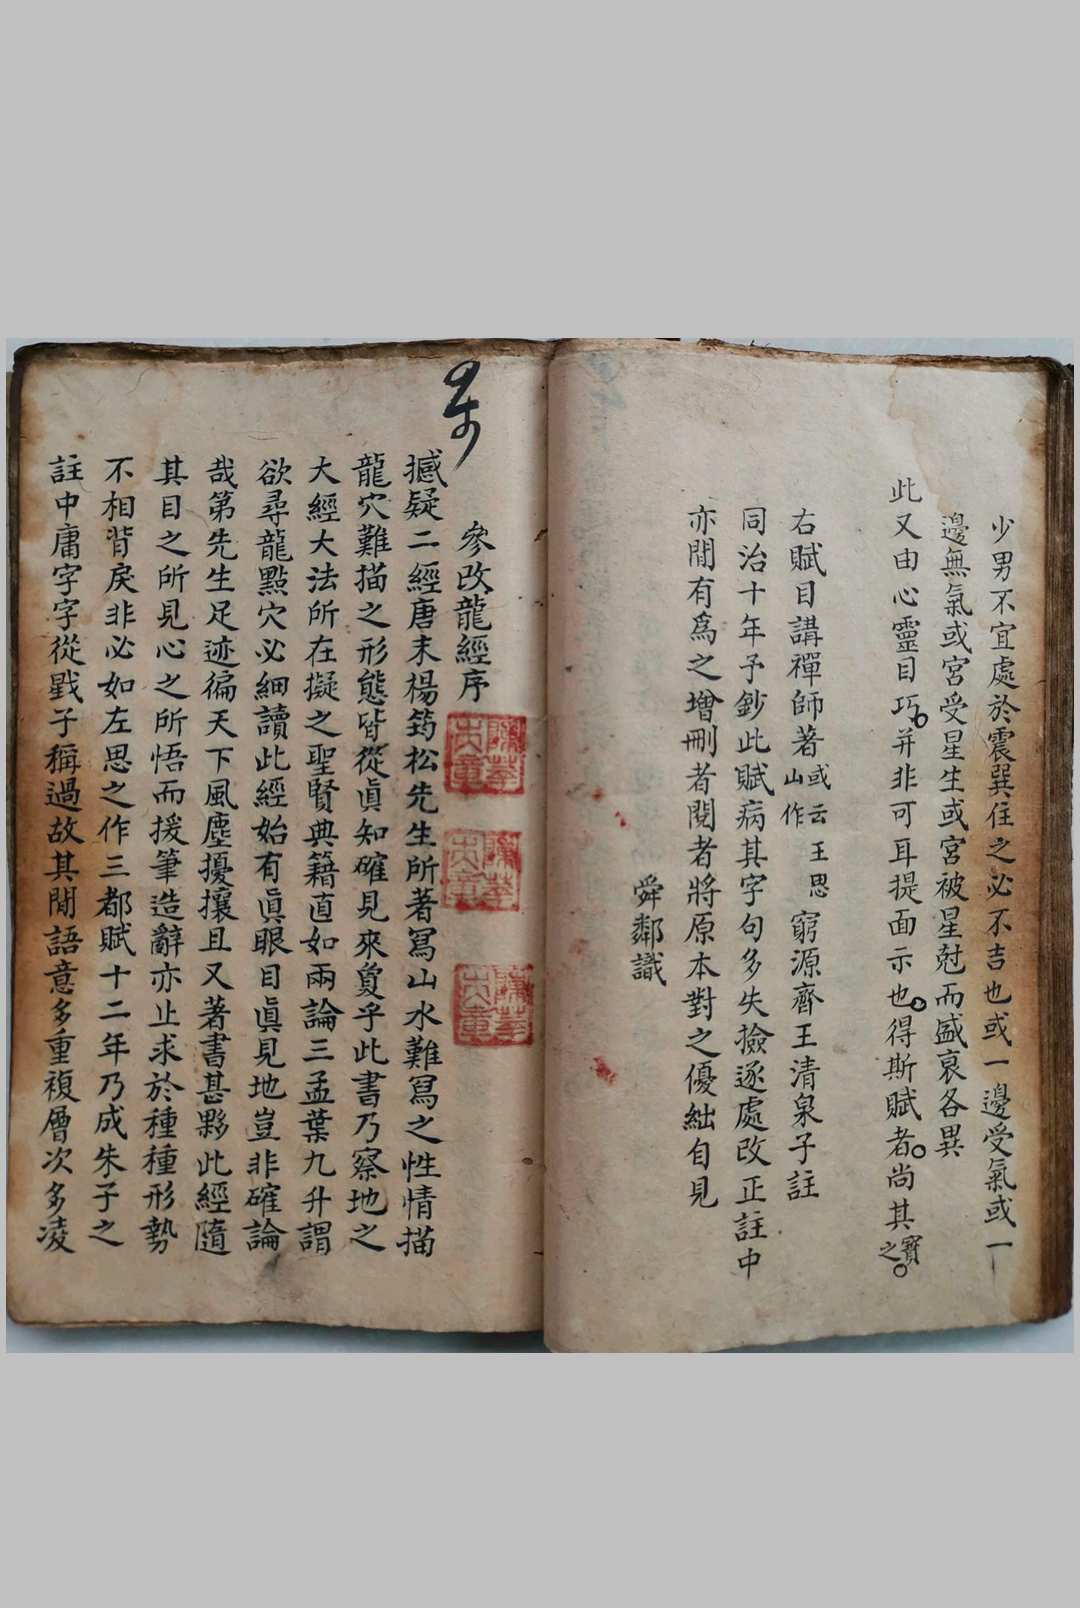 少男不宜處於震巽住之必不吉也或一邊受氣或一
邊無氣或宮受星生或宮被星尅而盛衰各異
此又由心靈目巧并非可耳提面示也得斯賦者尚其寳之
右賦目講禪師著或云王思山作窮源齊王清泉子註
同治十年予鈔此賦病其字句多失撿逐處改正註中
亦間有爲之增刪者閱者將原本對之優絀自見
舜鄰識
參改龍經序
撼疑二經唐末楊筠松先生所著冩山水難冩之性情描
龍穴難描之形態皆從眞知確見來夐乎此書乃察地之
大經大法所在擬之聖賢典籍直如兩論三孟葉九升謂
欲尋龍點穴必細讀此經始有眞眼目眞見地豈非確論
哉第先生足迹徧天下風塵擾攘且又著書甚夥此經隨
其目之所見心之所悟而援筆造辭亦止求於種種形勢
不相背戾非必如左思之作三都賦十二年乃成朱子之
註中庸字字從戥子稱過故其間語意多重複層次多凌